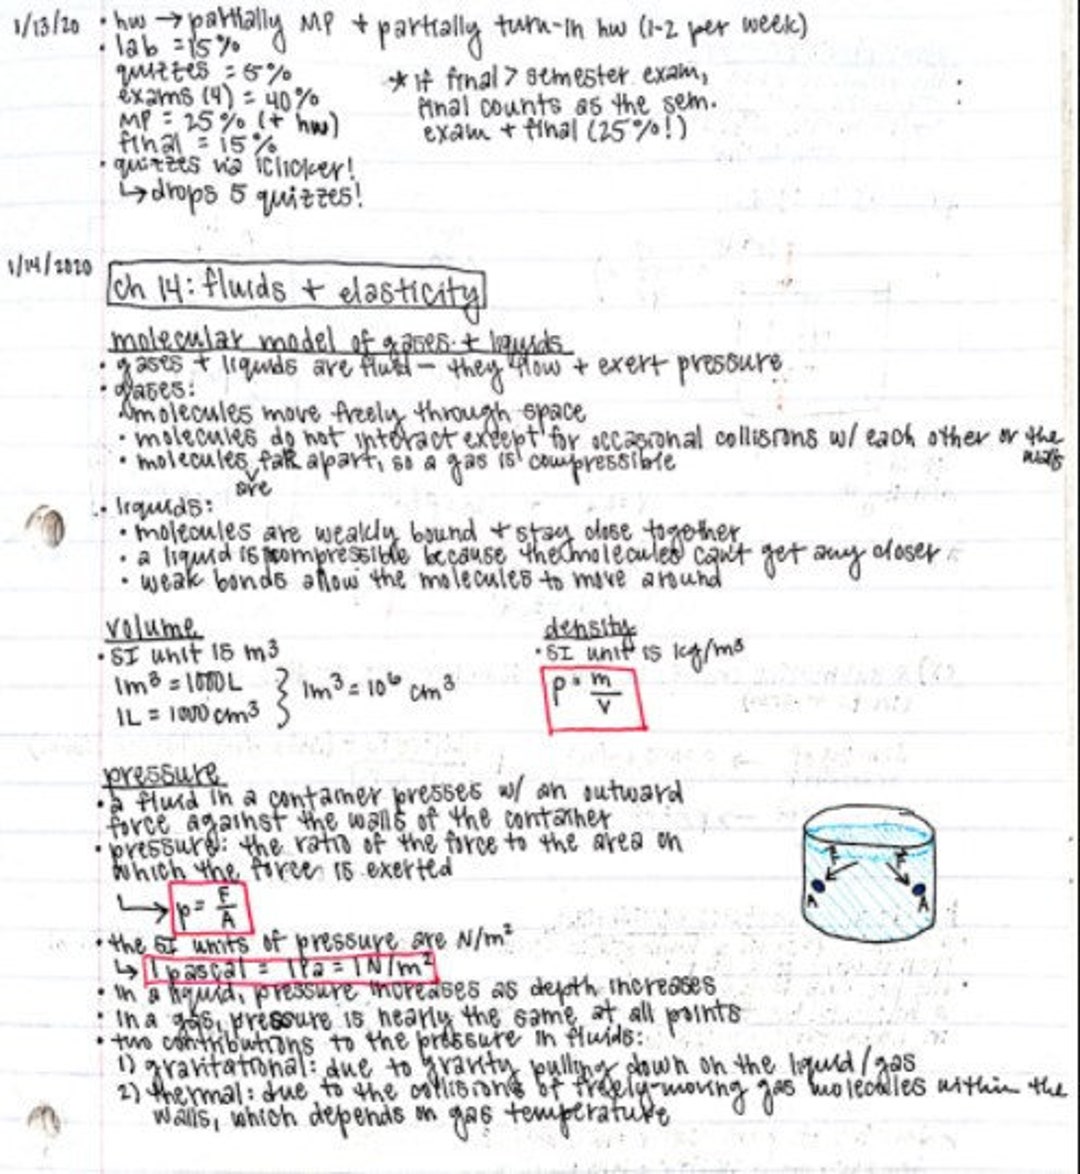 1/13/20 • hw → partially MP + partially turn-in hw (1-2 per week)
• lab = 15%
quizzes = 5%
exams (4) = 40%
MP = 25% (+ hw)
final = 15%
* if final > semester exam,
final counts as the sem.
exam + final (25%!)
• quizzes via iClicker!
↳ drops 5 quizzes!
1/14/2020
ch 14: fluids + elasticity
molecular model of gases + liquids
• gases + liquids are fluid — they flow + exert pressure
• gases:
• molecules move freely through space
• molecules do not interact except for occasional collisions w/ each other or the
walls
• molecules far apart, so a gas is compressible
are
• liquids:
• molecules are weakly bound + stay close together
• a liquid is incompressible because the molecules can't get any closer
• weak bonds allow the molecules to move around
volume
• SI unit is m³
1m³ = 1000L
1L = 1000 cm³
} 1m³ = 10⁶ cm³
density
• SI unit is kg/m³
ρ = m/V
pressure
• a fluid in a container presses w/ an outward
force against the walls of the container
• pressure: the ratio of the force to the area on
which the force is exerted
↳ p = F/A
F F
A A
• the SI units of pressure are N/m²
↳ 1 pascal = 1Pa = 1 N/m²
• in a liquid, pressure increases as depth increases
• in a gas, pressure is nearly the same at all points
• two contributions to the pressure in fluids:
1) gravitational: due to gravity pulling down on the liquid/gas
2) thermal: due to the collisions of freely-moving gas molecules within the
walls, which depends on gas temperature